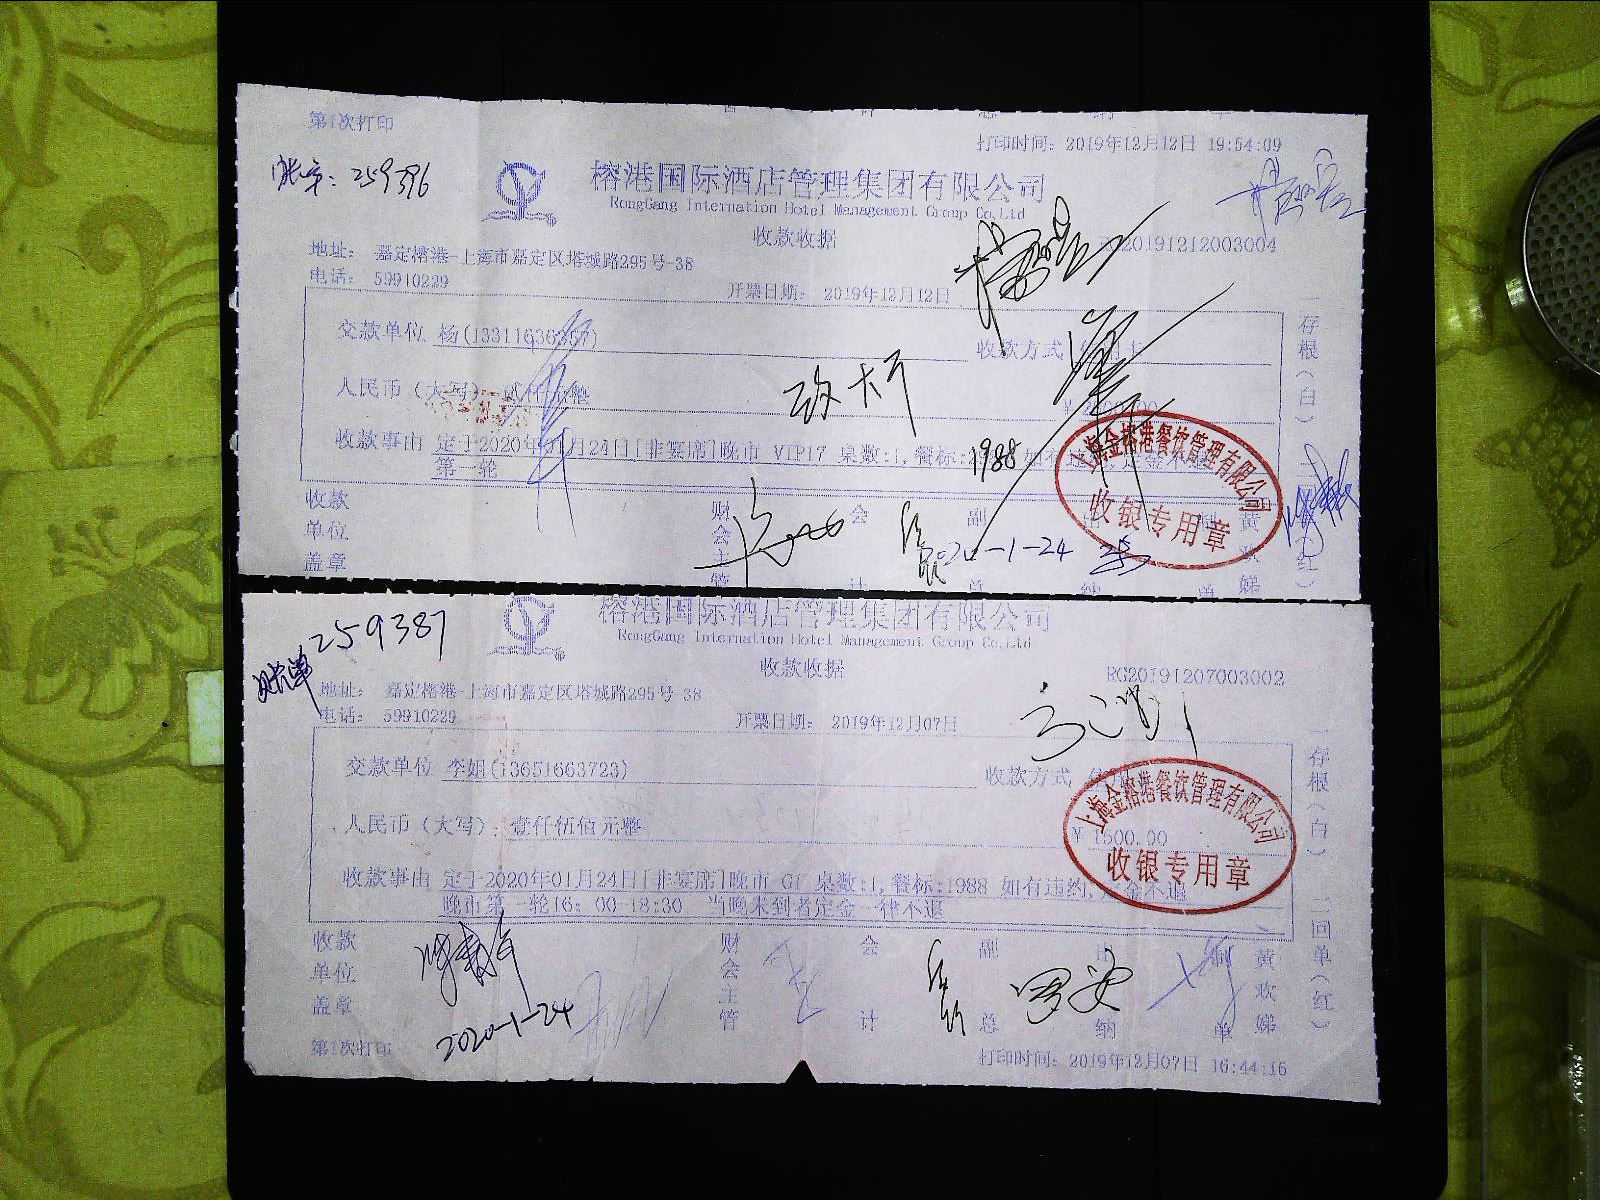 第1次打印
打印时间: 2019年12月12日 19:54:09
账单: 259396
榕港国际酒店管理集团有限公司
RongGang Internation Hotel Management Group Co,Ltd
收款收据
20191212003004
地址: 嘉定榕港-上海市嘉定区塔城路295号-38
电话: 59910229
开票日期: 2019年12月12日
交款单位 杨
收款方式
人民币(大写): 贰仟元整
改大厅
收款事由 定于2020年01月24日[非宴席]晚市 VIP17 桌数:1,餐标: 1988 如有违约
第一轮
上海金榕港餐饮管理有限公司
收银专用章
收款 单位 盖章
财会主管
会计
副总
出纳
制单 黄欢娣
2020-1-24
一存根(白)
二回单(红)
259387
账单
榕港国际酒店管理集团有限公司
RongGang Internation Hotel Management Group Co,Ltd
收款收据
RG20191207003002
地址: 嘉定榕港-上海市嘉定区塔城路295号-38
电话: 59910229
开票日期: 2019年12月07日
交款单位 李娟(13651663723)
收款方式
人民币(大写): 壹仟伍佰元整
¥ 1500.00
收款事由 定于2020年01月24日[非宴席]晚市 G1 桌数:1,餐标:1988 如有违约,定金不退
晚市第一轮16: 00-18:30 当晚未到者定金一律不退
上海金榕港餐饮管理有限公司
收银专用章
收款 单位 盖章
财会主管
会计
副总
出纳
制单 黄欢娣
2020-1-24
一存根(白)
二回单(红)
第1次打印
打印时间: 2019年12月07日 16:44:16